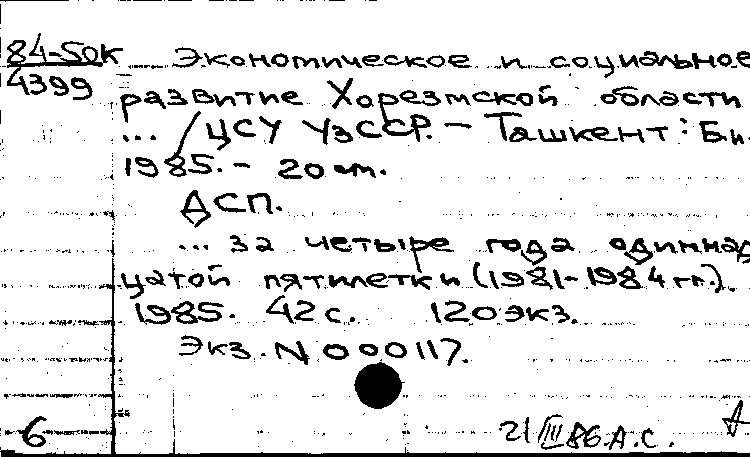 84-50к Экономическое и социальное
4399 развитие Хорезмской области
... / ЦСУ УзССР. – Ташкент: Б.и.
1985. – 20 см.
ДСП.
... за четыре года одиннад
цатой пятилетки (1981-1984 гг.).
1985. 42 с. 120 экз.
Экз. N 000117.
6 21/III 86. А.С.